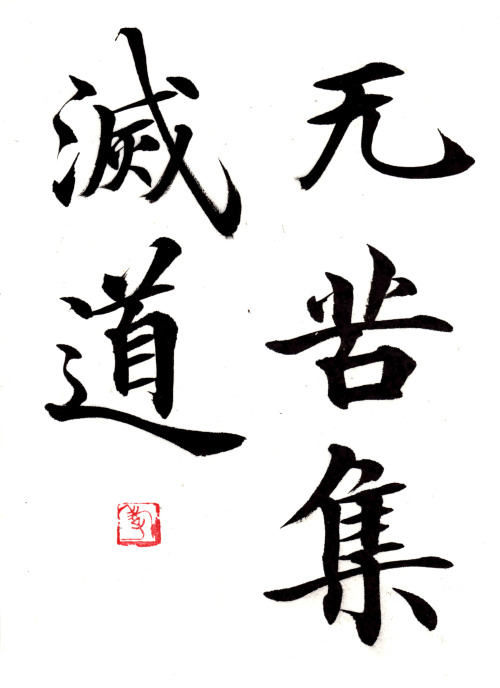 无苦集
滅道